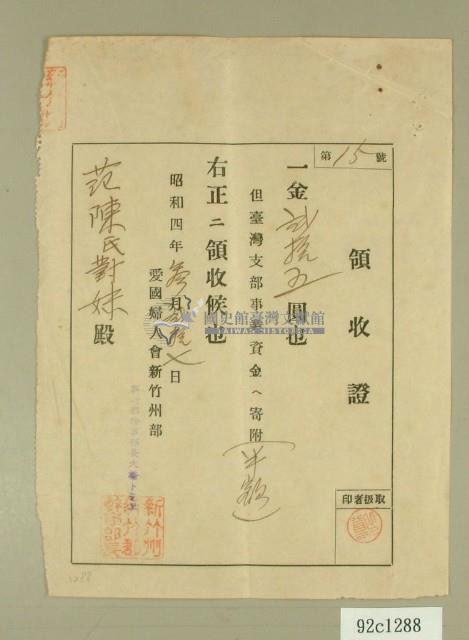 第15號
領收證
一金貳拾五圓也
但臺灣支部事業資金ヘ寄附
(半額)
右正ニ領收候也
昭和四年參月貳拾七日
愛國婦人會新竹州部
范陳氏對妹殿
取扱者印
國史館臺灣文獻館
TAIWAN HISTORICA
1288
92c1288